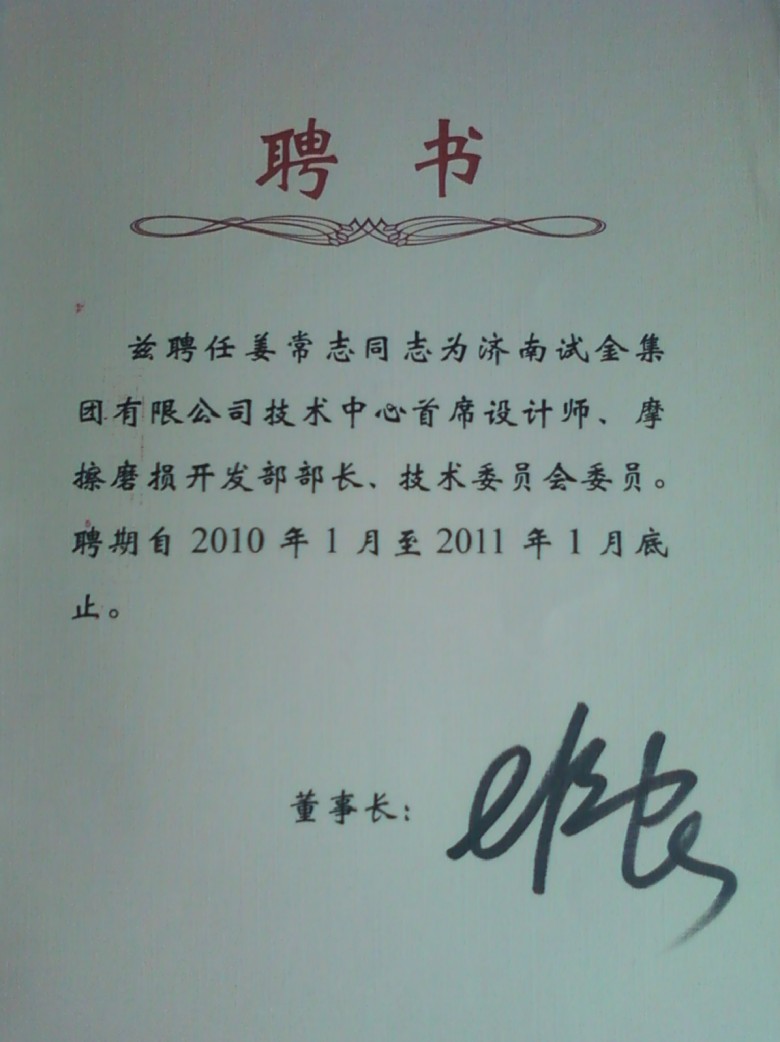 聘 书
兹聘任姜常志同志为济南试金集
团有限公司技术中心首席设计师、摩
擦磨损开发部部长、技术委员会委员。
聘期自 2010 年 1 月至 2011 年 1 月底
止。
董事长：